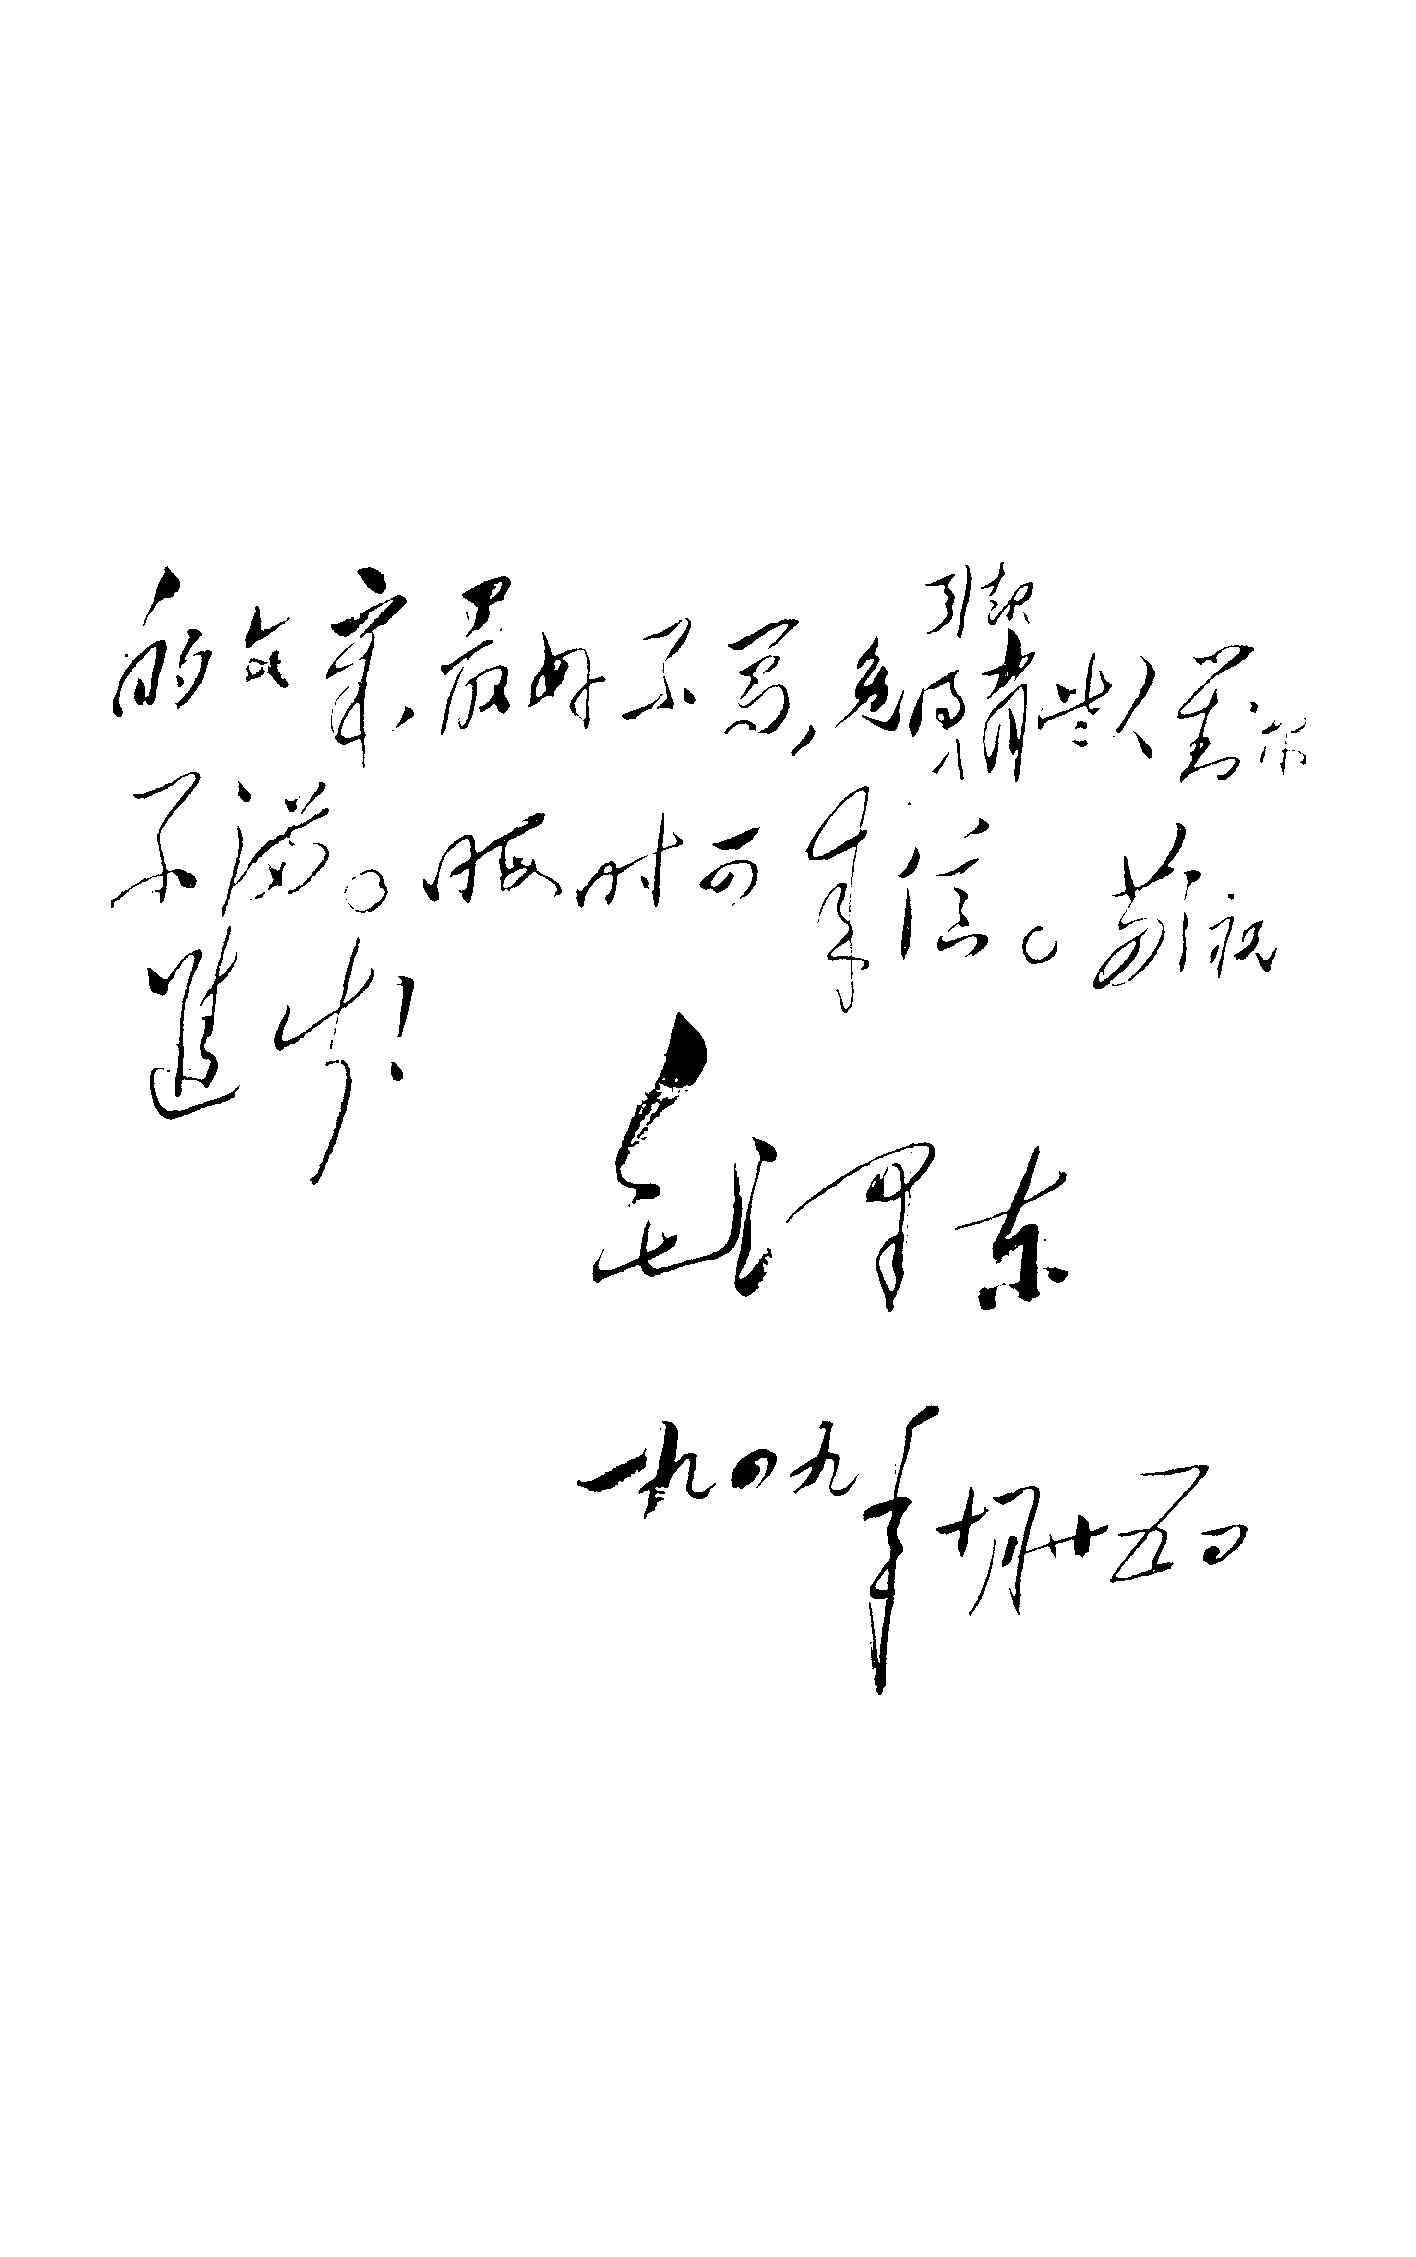 引起
的文章最好不写,免得有些人對你
不满。暇时可来信。敬祝
進步!
毛泽东
一九四九年十月廿五日